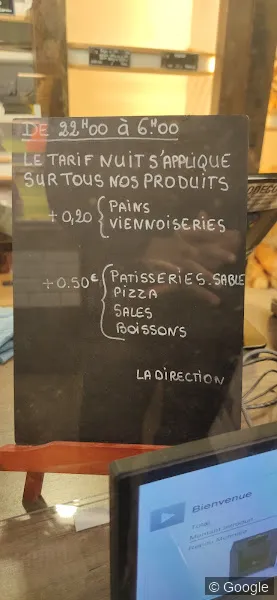 DE 22H00 à 6H00
LE TARIF NUIT S'APPLIQUE
SUR TOUS NOS PRODUITS
+0,20 { PAINS
VIENNOISERIES
+0.50€ { PATISSERIES.SABLE
PIZZA
SALES
BOISSONS
LA DIRECTION
Bienvenue
© Google